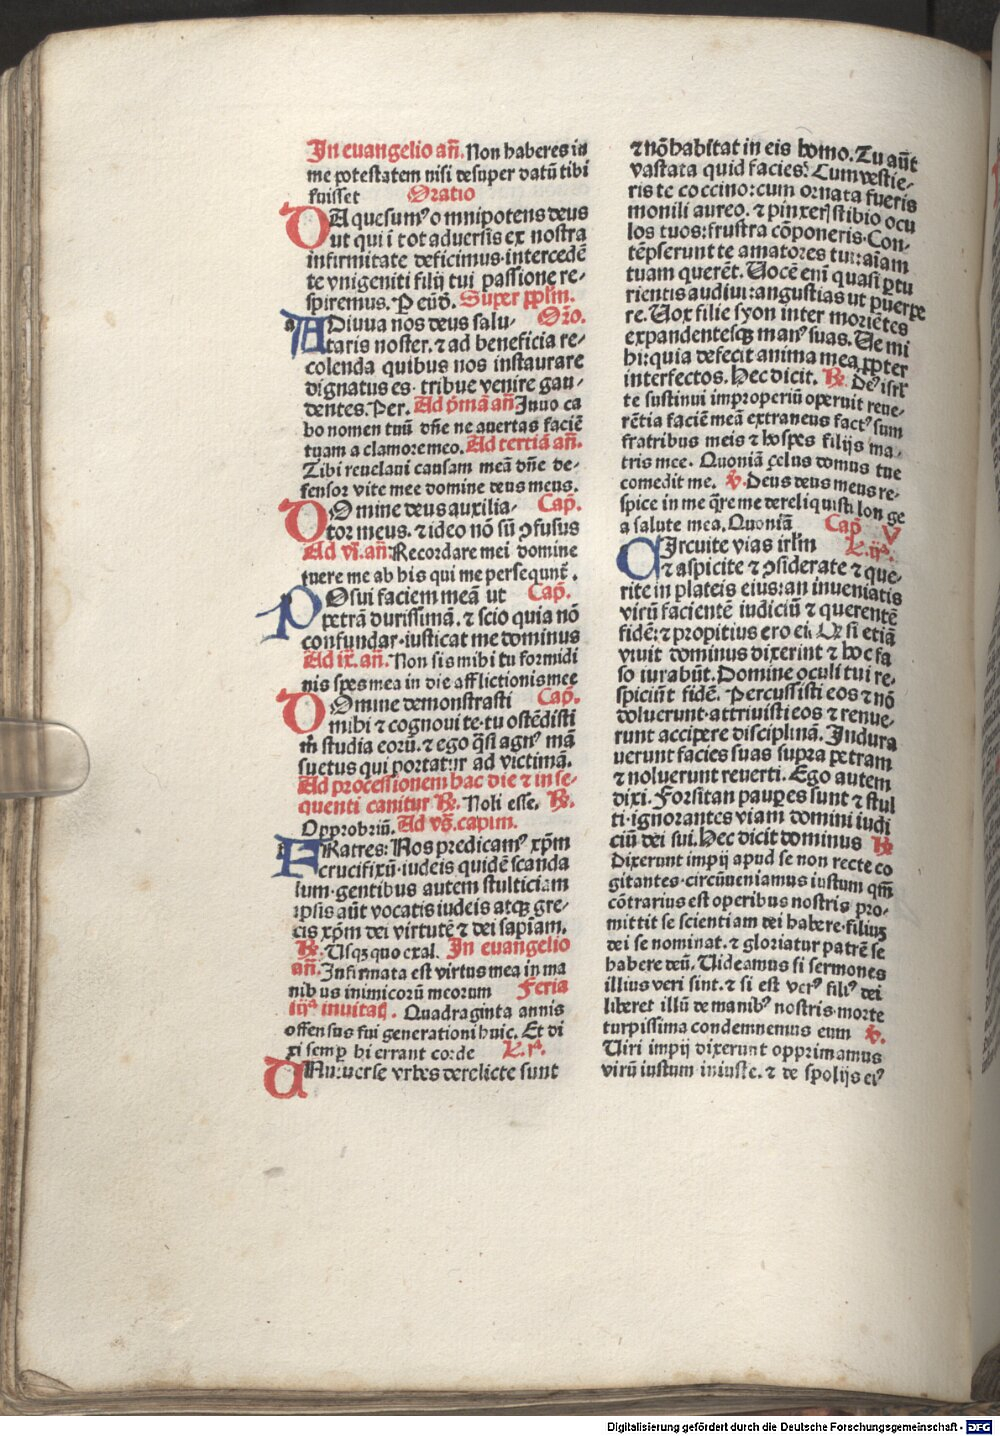 In euangelio añ. Non haberes in
me potestatem nisi desuper datū tibi
fuisset Oratio
DA quesumꝰ omnipotens deus
ut qui ī tot aduersis ex nostra
infirmitate deficimus· intercedē
te vnigeniti filij tui passione re-
spiremus. P eūd. Super pplm.
ADiuua nos deus salu- Oro.
taris noster. ⁊ ad beneficia re-
colenda quibus nos instaurare
dignatus es· tribue venire gau-
dentes. Per. Ad pmā añ. Inuo ca
bo nomen tuū dñe ne auertas faciē
tuam a clamore meo. Ad tertiā añ.
Tibi reuelaui causam meā dñe de-
fensor vite mee domine deus meus.
DOmine deus auxilia- Cap.
tor meus. ⁊ ideo nō sū ꝯfusus
Ad vi. añ: Recordare mei domine
tuere me ab his qui me persequnt.
POsui faciem meā ut Cap.
petrā durissimā. ⁊ scio quia nō
confundar· iusticat me dominus
Ad ix. añ. Non sis mihi tu formidi
nis spes mea in die afflictionis mee
DOmine demonstrasti Cap.
mihi ⁊ cognoui te· tu ostēdisti
m studia eorū. ⁊ ego qsi agnꝰ mā
suetus qui portatur ad victimā.
Ad processionem hac die ⁊ in se-
quenti canitur ℟. Noli esse. ℟.
Opprobriū. Ad vs. capim.
FRatres: Nos predicamꝰ xpm
crucifixū· iudeis quidē scanda
lum· gentibus autem stulticiam
ipsis aūt vocatis iudeis atqꝫ gre-
cis xpm dei virtutē ⁊ dei sapiam.
℟. Usqꝫ quo exal. In euangelio
añ. Infirmata est virtus mea in ma
nibus inimicorū meorum Feria
iijᵃ inuitat. Quadraginta annis
offensus fui generationi huic. Et di
xi semp hi errant corde L. iᵃ.
UNiuerse vrbes derelicte sunt
⁊ nō habitat in eis homo. Tu aūt
vastata quid facies? Cum vestie-
ris te coccino: cum ornata fueris
monili aureo. ⁊ pinxeris stibio ocu
los tuos: frustra cōponeris. Con-
tēpserunt te amatores tui: aīam
tuam querēt. Uocē eni quasi pertu
rientis audiui: angustias ut puerpe
re. Uox filie syon inter moriētes
expandentesqꝫ manꝰ suas. Ue mi
hi: quia defecit anima mea ppter
interfectos. Hec dicit. ℟. Deꝰ isrl
te sustinui improperiū operuit reue-
rētia faciē meā extraneus factꝰ sum
fratribus meis ⁊ hospes filijs ma-
tris mee. Quoniā ҫelus domus tue
comedit me. ℣. Deus deus meus re-
spice in me qre me dereliquisti longe
a salute mea. Quoniā Cap V
CIrcuite vias irlm L. ijᵃ.
⁊ aspicite ⁊ ꝯsiderate ⁊ que-
rite in plateis eius: an inueniatis
virū facientē iudiciū ⁊ querentē
fidē: ⁊ propitius ero ei. Qꝫ si etiā
viuit dominus dixerint ⁊ hoc fa
so iurabūt. Domine oculi tui re-
spiciūt fidē. Percussisti eos ⁊ nō
doluerunt· attriuisti eos ⁊ renue-
runt accipere disciplinā. Indura
uerunt facies suas supra petram
⁊ noluerunt reuerti. Ego autem
dixi. Forsitan paupes sunt ⁊ stul
ti· ignorantes viam domini iudi
ciū dei sui. Hec dicit dominus ℟
Dixerunt impij apud se non recte co
gitantes· circūueniamus iustum qm̄
cōtrarius est operibus nostris pro-
mittit se scientiam dei habere· filiuꝫ
dei se nominat. ⁊ gloriatur patrē se
habere deū. Uideamus si sermones
illius veri sint. ⁊ si est verꝰ filiꝰ dei
liberet illū de manibꝰ nostris· morte
turpissima condemnemus eum ℣.
Uiri impij dixerunt opprimamus
virū iustum iniuste. ⁊ de spolijs eiꝰ
Digitalisierung gefördert durch die Deutsche Forschungsgemeinschaft - DFG